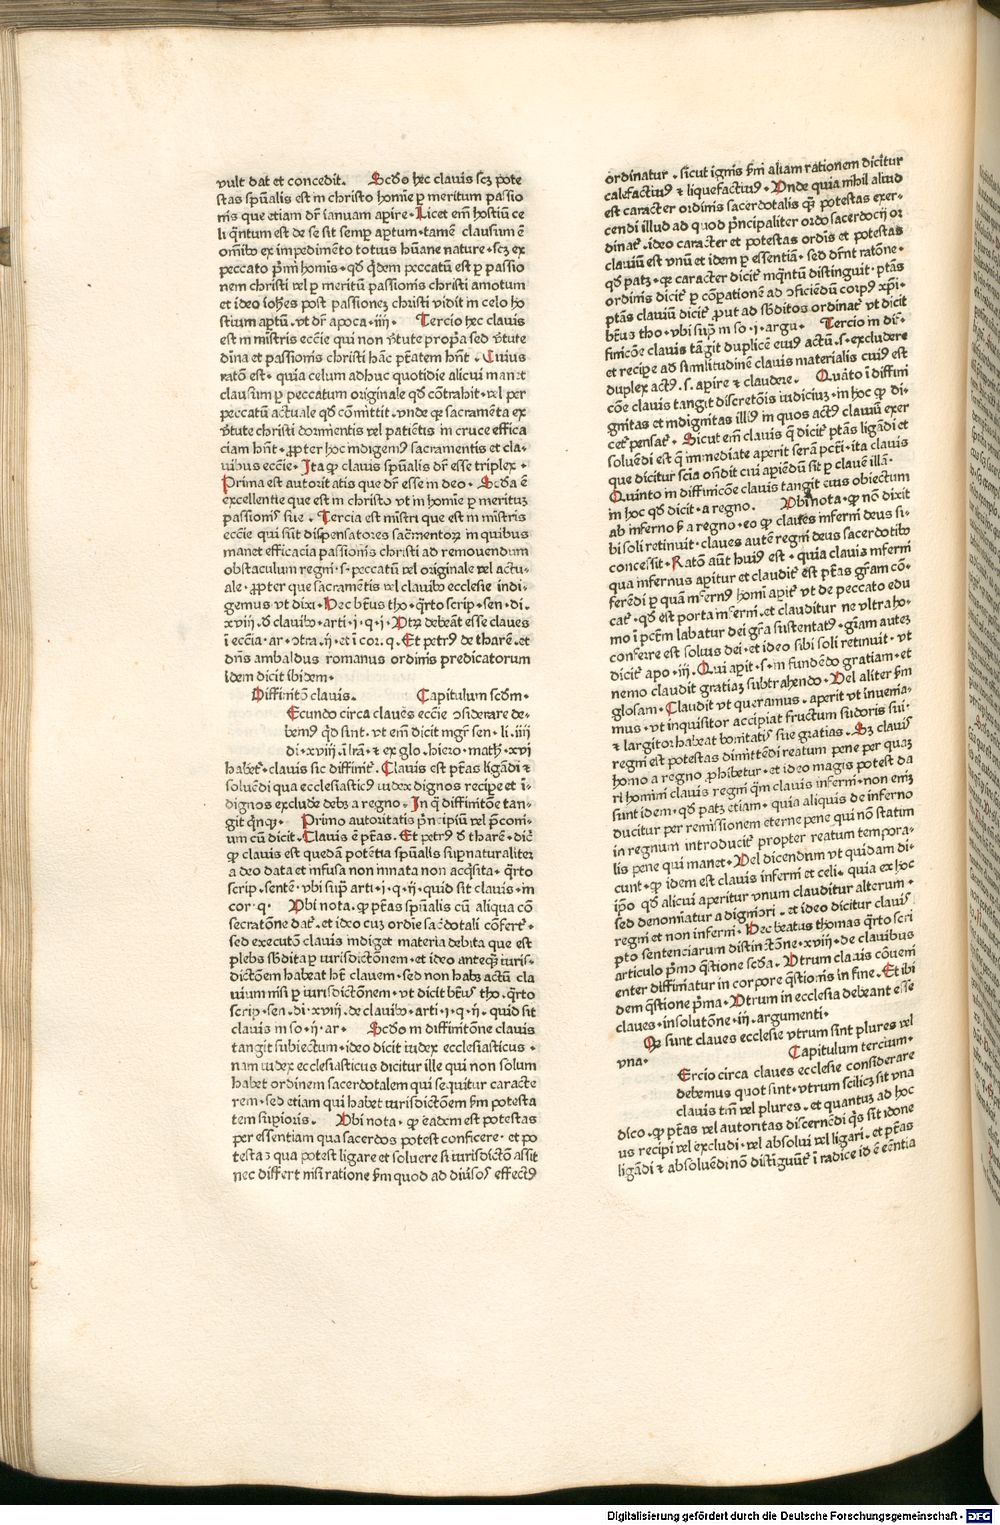 vult dat et concedit. Scd̄o hec clavis scꝫ pote
stas spūalis est in christo homīe ꝑ meritum passio
nis que etiam dr̄ ianuam apīre · Licet em̄ hostiū ce
li q̄ntum est de se sit semꝑ aꝑtum · tamē clausum ē
om̄ibꝰ ex impedimēto totius hūane nature · scꝫ ex
peccato pͥmi homis · qd̄ q̄dem peccatū est ꝑ passio
nem christi vel ꝑ meritū passionis christi amotum
et ideo ioh̄es post passionez christi vidit in celo ho
stium aꝑtū · vt dr̄ apoca · iiii · Tercio hec clavis
est in mīstris eccīe qui non v̄tute propͥa sed v̄tute
dīna et passionis christi hāc ptātem hn̄t · Cuius
ratō est · quia celum adhuc quotidie alicui manet
clausum ꝑ peccatum originale qd̄ cōtrahit · vel per
peccatū actuale qd̄ cōmittit · vnde qꝛ sacramēta ex
v̄tute christi dormientis vel patiētis in cruce effica
ciam hn̄t · ꝓpter hoc indigemꝰ sacramentis et cla-
uibus eccīe · Ita ꝙ clavis spūalis dr̄ esse triplex ·
Prima est autoritatis que dr̄ esse in deo · Scd̄a ē
excellentie que est in christo vt in homīe ꝑ meritum
passionis sue · Tercia est mīstri que est in mīstris
eccīe qui sūt dispensatores sac̄mentoꝝ in quibus
manet efficacia passionis christi ad remouendum
obstaculum regni · s · peccatū vel originale vel actu-
ale · ꝓpter que sacramētis vel clauibꝰ ecclesie indi-
gemus vt dixi · Hec bt̄us tho · q̄rto scrip · sen · di ·
xviij · d̄ clauibꝰ · arti · i · q · i · Vtꝝ debeāt esse claues
ī eccīa · ar · ͻtra · ij · et ī cor · q · Et petrꝰ de tharē · et
dn̄s ambaldus romanus ordinis predicatorum
idem dicit ibidem ·
Diffinitō clavis. Capitulum scd̄m ·
Ecundo circa claues eccīe ͻsiderare de-
bemꝰ qd̄ sint · vt em̄ dicit mgr̄ sen · li · iiii
di · xviii · ī lr̄a · ⁊ ex glo · hiero · math̄ · xvi
habet · clavis sic diffinit̄ · Clavis est ptās ligādi ⁊
soluēdi qua ecclesiasticꝰ iudex dignos recipe et ī-
dignos excludē debꝫ a regno · In q̄ diffinitōe tan-
git q̄nqꝫ · Primo autoritatis pͥncipiū vel pͥm coni-
um cū dicit · Clavis ē ptās. Et petrꝰ d̄ tharē · dic̄
ꝙ clavis est quedā potētia spūalis sup̄naturaliter
a deo data et infusa non innata non acq̄sita · q̄rto
scrip · sentē · vbi sup̄ arti · i · q · ij · quid sit clavis · in
cor · q · Vbi nota · ꝙ ptās spūalis cū aliqua cō
secratōne dat̄ · et ideo cuꝫ ordīe sac̄dotali cōfert̄ ·
sed executō clavis indiget materia debita que est
plebs sb̄dita ꝑ iurisdictōnem · et ideo anteqꝫ iuris-
dictōem habeat hꝫ clauem · sed non habꝫ actū cla
uium nisi ꝑ iurisdictōnem · vt dicit bt̄us tho · q̄rto
scrip · sen · di · xviii · de clauibꝰ · arti · i · q · ij · quid sit
clavis in so · ij · ar · Scd̄o in diffinitōne clavis
tangit subiectum · ideo dicit iudex ecclesiasticus ·
nam iudex ecclesiasticus dicitur ille qui non solum
habet ordinem sacerdotalem qui sequitur caracte
rem · sed etiam qui habet iurisdictōem ẜm potesta
tem supioris · Vbi nota · ꝙ eadem est potestas
per essentiam qua sacerdos potest conficere · et po
testas qua potest ligare et soluere si iurisdictō assit
nec differt nisi ratione ẜm quod ad diuͥsos effectꝰ
ordinatur · sicut ignis ẜm aliam rationem dicitur
calefactiuꝰ ⁊ liquefactiuꝰ · Vnde quia nihil aliud
est caracter ordinis sacerdotalis qꝫ potestas exer-
cendi illud ad quod pͥncipaliter ordo sacerdocij or
dinat̄ · ideo caracter et potestas ordīs et potestas
clauiū est vnū et idem ꝑ essentiā · sed dr̄nt ratōne ·
qd̄ patꝫ · qꝛ caracter dicit̄ inq̄ntū distinguit · ptās
ordinis dicit̄ ꝑ cōpationē ad ͻficiēdū corpꝰ xpi ·
ptās clauiū dicit̄ ꝓut ad sb̄ditos ordinat̄ vt dicit
bt̄us tho · vbi sup̄ in so · i · argu · Tercio in dif-
finicōe clavis tāgit duplicē eiuꝰ actū · s · excludere
et recipe ad similitudinē clavis materialis cuiꝰ est
duplex actꝰ · s · apīre ⁊ claudere · Quarto ī diffini
cōe clavis tangit discretōis iudiciuꝫ · in hoc ꝙ di-
gnitas et indignitas illiꝰ in quos actꝰ clauiū exer
cet̄ pensat̄ · Sicut em̄ clavis q̄ dicit̄ ptās ligādi et
soluēdi est q̄ immediate aperit serā pcti · ita clavis
que dicitur scīa on̄dit cui apiēdū sit ꝑ clauē illā ·
Quinto in diffinicōe clavis tangit eius obiectum
in hoc qd̄ dicit · a regno. Vbi nota · ꝙ nō dixit
ab inferno sꝫ a regno · eo ꝙ claues inferni deus si-
bi soli retinuit · claues autē regni deus sacerdotibꝰ
concessit · Ratō aūt huiꝰ est · quia clavis inferni
qua infernus apitur et claudit̄ est ptās gr̄am cō-
ferēdi ꝑ quā infernꝰ homī apit̄ vt de peccato edu
cat̄ · qd̄ est porta inferni · et clauditur ne vltra ho-
mo ī pctm̄ labatur dei gr̄a sustentatꝰ · gr̄am autez
conferre est solius dei · et ideo sibi soli retinuit · vt
dicit̄ apo · iij · Qui apit · s · in fundēdo gratiam · et
nemo claudit gratiaꝫ subtrahendo · Vel aliter ẜm
glosam · Claudit vt queramus · aperit vt inuenia-
mus · vt inquisitor accipiat fructum sudoris sui ·
⁊ largitor habeat bonitatis sue gratias · Sꝫ clauis
regni est potestas dimittēdi reatum pene per quaꝫ
homo a regno ꝓhibetur · et ideo magis potest da
ri homini clavis regni qm̄ clavis inferni · non enī
sunt idem · qd̄ patꝫ etiam · quia aliquis de inferno
ducitur per remissionem eterne pene qui nō statim
in regnum introducit̄ propter reatum tempora-
lis pene qui manet · Vel dicendum vt quidam di-
cunt · ꝙ idem est clavis inferni et celi · quia ex hoc
ipō qd̄ alicui aperitur vnum clauditur alterum ·
sed denominatur a digniori · et ideo dicitur clauis
regni et non inferni · Hec beatus thomas q̄rto scri
pto sentenciarum distinctōne · xviii · de clauibus
articulo pͥmo q̄stione scd̄a · Vtrum clavis cōueni
enter diffiniatur in corpore q̄stionis in fine · Et ibi
dem q̄stione pͥma · Vtrum in ecclesia debeant esse
claues · in solutōne · iii · argumenti ·
Qꝫ sunt claues ecclesie vtrum sint plures vel
vna · Capitulum tercium ·
Ercio circa claues ecclesie considerare
debemus quot sint · vtrum scilicꝫ sit vna
clavis tm̄ vel plures · et quantuꝫ ad hoc
dico · ꝙ ptās vel autoritas discernēdi q̄s sit idone
us recipi vel excludi · vel absolui vel ligari · et ptās
ligādi ⁊ absoluēdi nō distīguūt̄ ī radice id ē eēntia
Digitalisierung gefördert durch die Deutsche Forschungsgemeinschaft - DFG